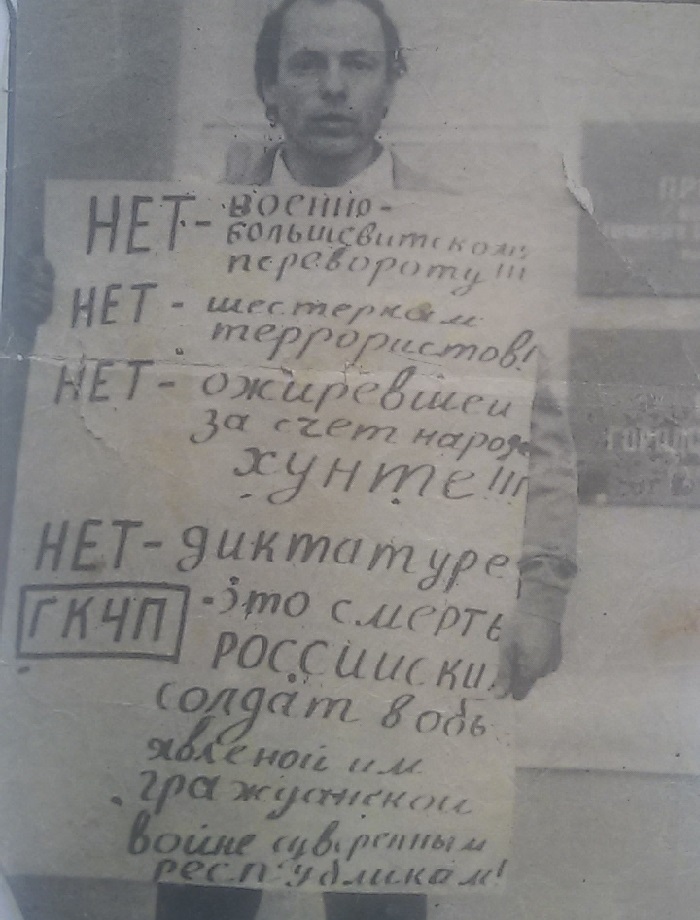 НЕТ - военно-
большевитскому
перевороту!!!
НЕТ - шестеркам
террористов!
НЕТ - ожиревшей
за счет народа
ХУНТЕ!!!
НЕТ - диктатуре
ГКЧП - это смерть
РОССИЙСКИ
солдат в объ
явленой им
гражданской
войне суверенным
республикам!